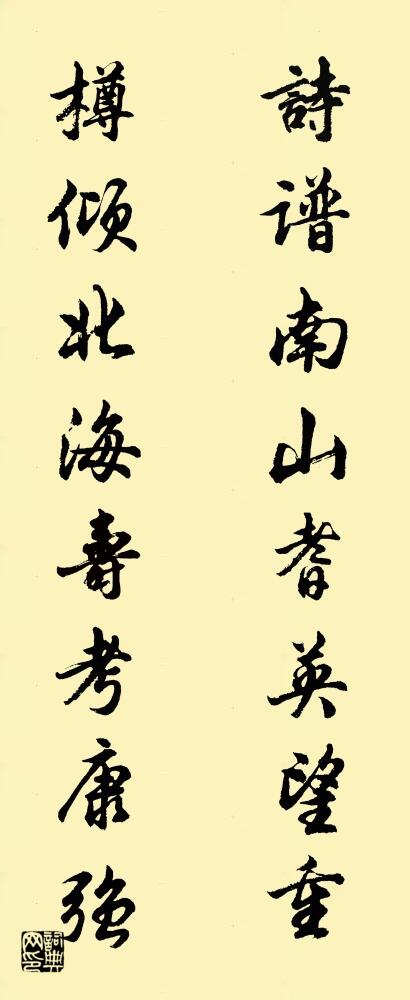 詩谱南山耆英望重
樽倾北海壽考康强
詞典网印